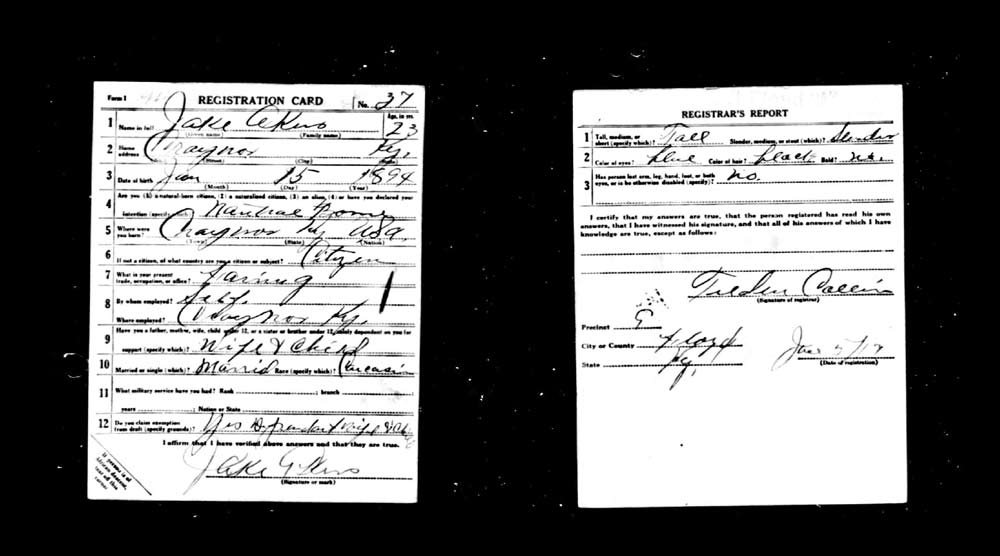 Form 1 REGISTRATION CARD No. 37
1 Name in full Jake Akers Age, in yrs. 23
(Given name) (Family name)
2 Home address Craynor Ky.
(Street) (City) (State)
3 Date of birth Jan 15 1894
(Month) (Day) (Year)
4 Are you (1) a natural-born citizen, (2) a naturalized citizen, (3) an alien, (4) or have you declared your
intention (specify which)?
5 Where were you born? Craynor Ky USA
(Town) (State) (Nation)
6 If not a citizen, of what country are you a citizen or subject? Citizen
7 What is your present trade, occupation, or office? Farming
8 By whom employed? Self
Where employed? Craynor Ky.
9 Have you a father, mother, wife, child under 12, or a sister or brother under 12, solely dependent on you for
support (specify which)? Wife & Child
10 Married or single (which)? Married Race (specify which)? Caucasian
11 What military service have you had? Rank ; branch ;
years ; Nation or State
12 Do you claim exemption from draft (specify grounds)? Yes Dependent Wife &
I affirm that I have verified above answers and that they are true.
Jake Akers
(Signature or mark)
If person is of African descent, tear off this corner.
REGISTRAR'S REPORT
1 Tall, medium, or short (specify which)? Tall Slender, medium, or stout (which)? Slender
2 Color of eyes? blue Color of hair? black Bald? no.
3 Has person lost arm, leg, hand, foot, or both eyes, or is he otherwise disabled (specify)? no.
I certify that my answers are true, that the person registered has read his own
answers, that I have witnessed his signature, and that all of his answers of which I have
knowledge are true, except as follows:
Tilden Collins
(Signature of registrar)
Precinct 9
City or County Floyd
State Ky. 5/17
(Date of registration)